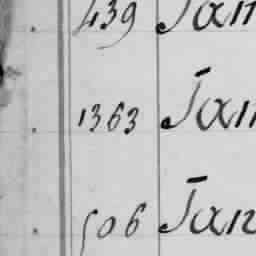 439 Jan
1363 Jan
506 Jan